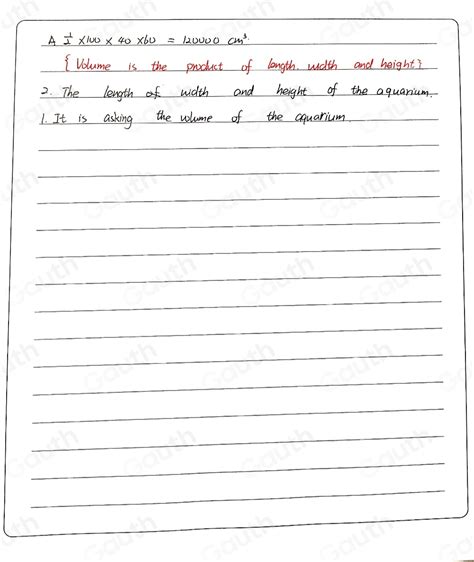 A 1/2 ×100 × 40 ×60 = 120000 cm³.
{ Volume is the product of length. width and height }
2. The length of width and height of the aquarium.
1. It is asking the volume of the aquarium.
Gauth